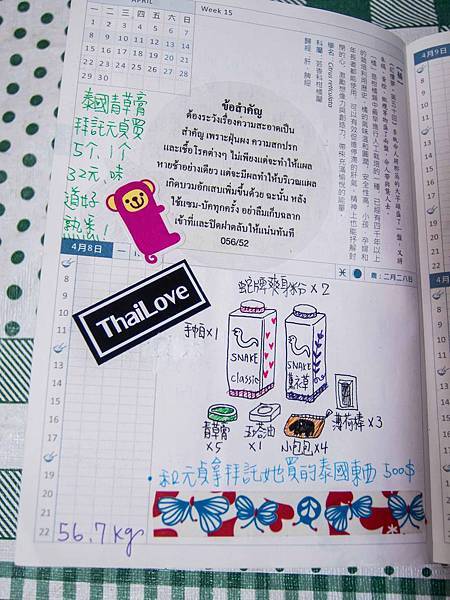 APRIL
Week 15
一 二 三 四 五 六 日
1 2 3 4 5 6 7
8 9 10 11 12 13 14
15 16 17 18 19 20 21
22 23 24 25 26 27 28
29 30
泰國青草膏
拜託元貞買
5个, 1个
32元, 味
道好
熟悉!
ข้อสำคัญ
ต้องระวังเรื่องความสะอาดเป็น
สำคัญ เพราะฝุ่นผง ความสกปรก
และเชื้อโรคต่างๆ ไม่เพียงแต่จะทำให้แผล
หายช้าอย่างเดียว แต่จะมีผลทำให้บริเวณแผล
เกิดบวมอักเสบเพิ่มขึ้นด้วย ฉะนั้น หลัง
ใช้แซม-บัคทุกครั้ง อย่าลืมเก็บฉลาก
เข้าที่และปิดฝาตลับให้แน่นทันที
056/52
學名：Citrus reticulata
科屬：芸香科柑橘屬
歸經：肝、脾經
4月9日
4月8日
農：二月二八日
ThaiLove
蛇牌爽身粉×2
手帕×1
SNAKE
classic
SNAKE
薰衣草
薄荷棒×3
青草膏
×5
五塔油
×1
小包包×4
•和元貞拿拜託她買的泰國東西 500$
8
9
10
11
12
13
14
15
16
17
18
19
20
21
22
56.7kg